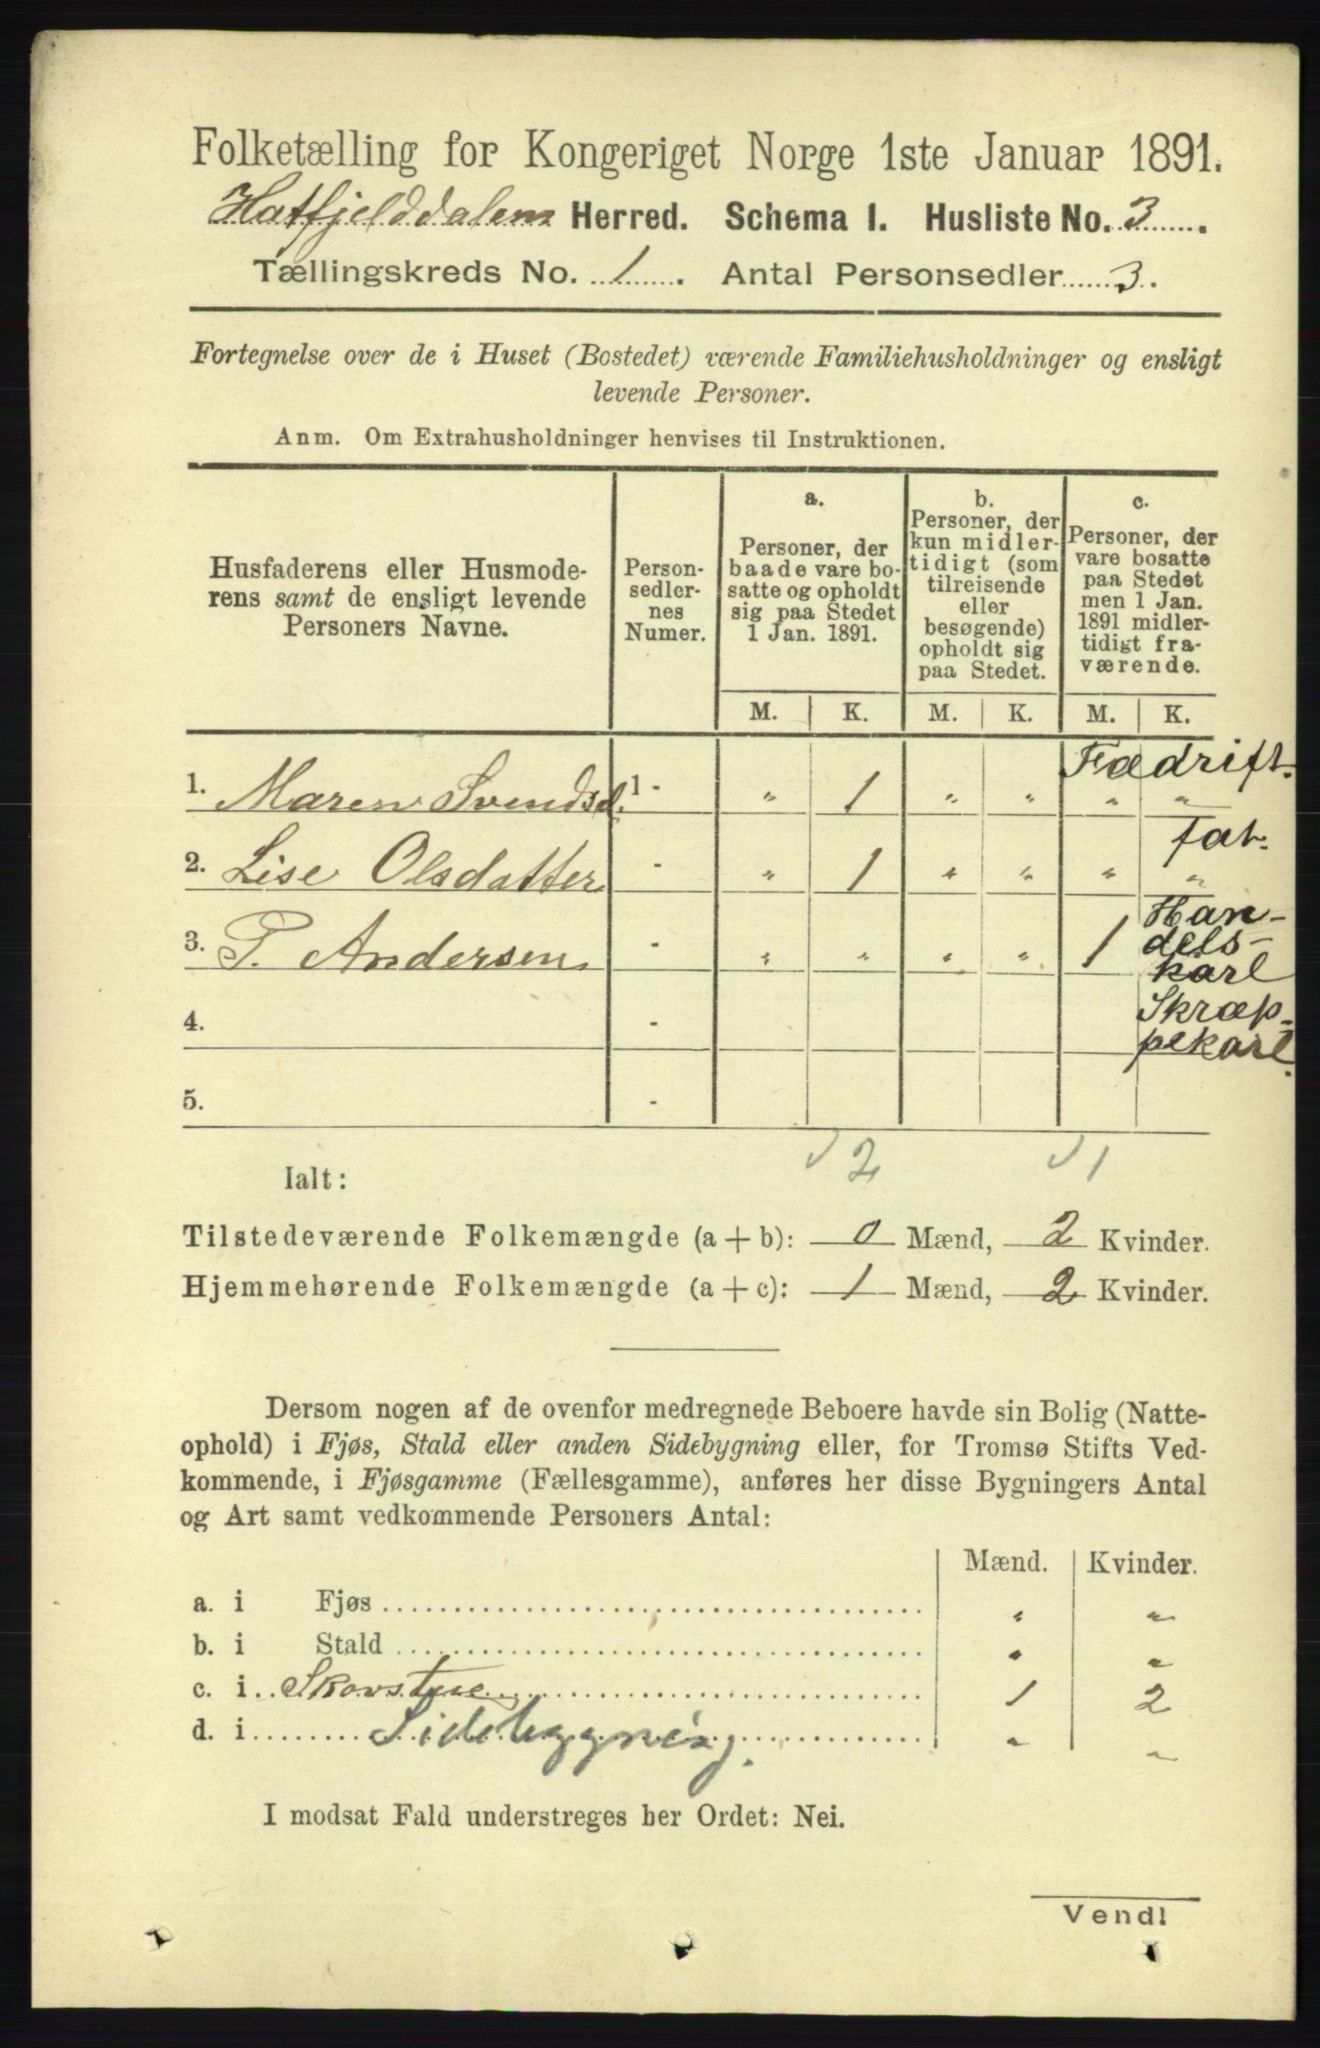 Folketælling for Kongeriget Norge 1ste Januar 1891.
Hatfjelddalens Herred. Schema I. Husliste No. 3.
Tællingskreds No. 1. Antal Personsedler 3.
Fortegnelse over de i Huset (Bostedet) værende Familiehusholdninger og ensligt
levende Personer.
Anm. Om Extrahusholdninger henvises til Instruktionen.
Husfaderens eller Husmode-
rens samt de ensligt levende
Personers Navne.
Person-
sedler-
nes
Numer.
a.
Personer, der
baade vare bo-
satte og opholdt
sig paa Stedet
1 Jan. 1891.
b.
Personer, der
kun midler-
tidigt (som
tilreisende
eller
besøgende)
opholdt sig
paa Stedet.
c.
Personer, der
vare bosatte
paa Stedet
men 1 Jan.
1891 midler-
tidigt fra-
værende.
M. K. M. K. M. K.
Fædrift.
1. Maren Svendsd. 1 - " 1 " " " "
fat.
2. Lise Olsdatter - " 1 " " " "
Han-
dels-
karl
3. P. Andersen - " " " " 1
Skræp-
pekarl.
4. -
5. -
2 1
Ialt:
Tilstedeværende Folkemængde (a + b): 0 Mænd, 2 Kvinder.
Hjemmehørende Folkemængde (a + c): 1 Mænd, 2 Kvinder.
Dersom nogen af de ovenfor medregnede Beboere havde sin Bolig (Natte-
ophold) i Fjøs, Stald eller anden Sidebygning eller, for Tromsø Stifts Ved-
kommende, i Fjøsgamme (Fællesgamme), anføres her disse Bygningers Antal
og Art samt vedkommende Personers Antal:
Mænd. Kvinder.
a. i Fjøs " "
b. i Stald " "
c. i Skovstue 1 2
d. i Sidebygning. " "
I modsat Fald understreges her Ordet: Nei.
Vend!